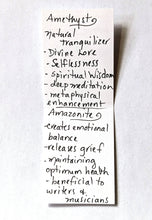 Amethyst
natural
tranquilizer
- Divine Love
- Selflessness
- spiritual wisdom
- deep meditation
- metaphysical
enhancement
Amazonite
- creates emotional
balance
- releases grief
- maintaining
optimum health
- beneficial to
writers &
musicians